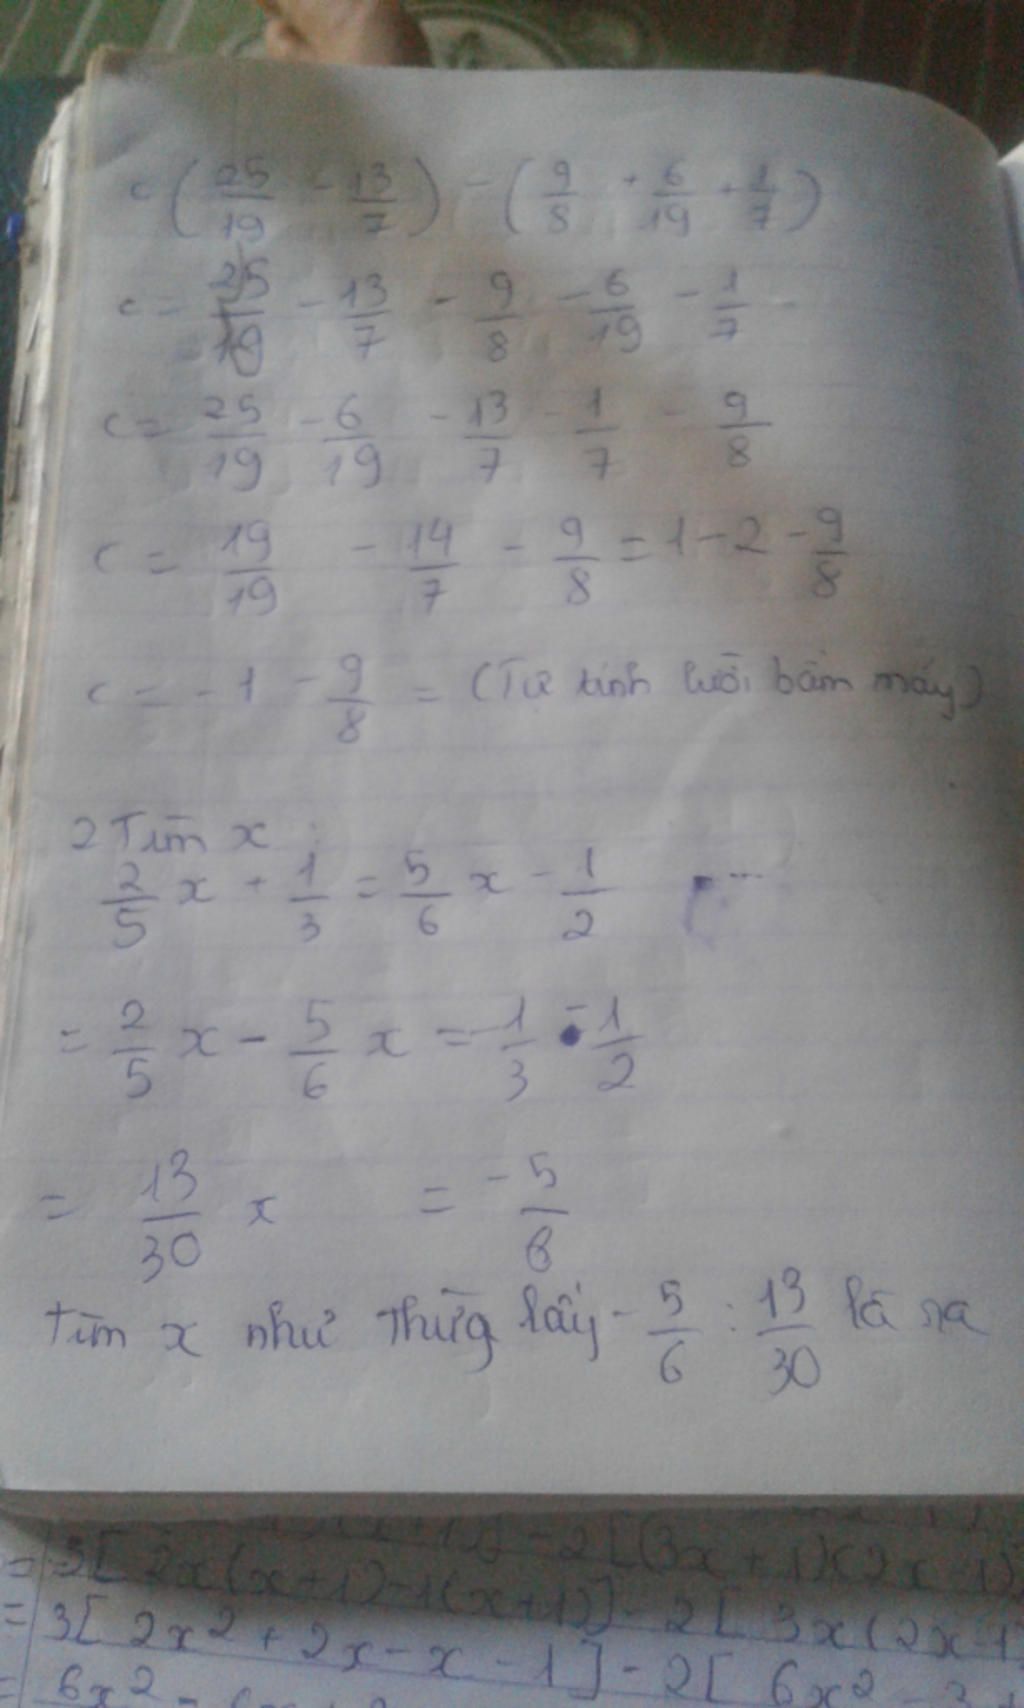 C (25/19 - 13/7) - (9/8 + 6/19 + 1/7)
C = 25/19 - 13/7 - 9/8 - 6/19 - 1/7
C = 25/19 - 6/19 - 13/7 - 1/7 - 9/8
C = 19/19 - 14/7 - 9/8 = 1 - 2 - 9/8
C = - 1 - 9/8 = (Tự tính lười bấm máy)
2 Tìm x :
2/5 x + 1/3 = 5/6 x - 1/2
= 2/5 x - 5/6 x = -1/3 - 1/2
= 13/30 x = -5/6
tìm x như thừg lấy - 5/6 : 13/30 là ra
- 2[(3x+1)(2x-1)
= 3[2x(x+1)-1(x+1)] - 2[3x(2x-1)
= 3[2x² + 2x - x - 1] - 2[6x²
= 6x²